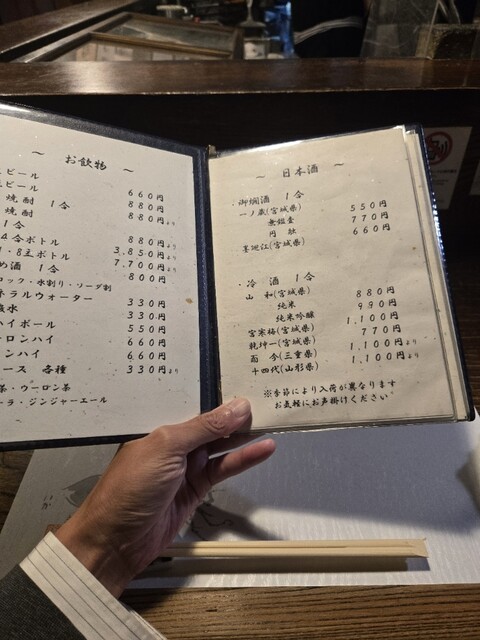 ～ お飲物 ～
ビール
ビール 660円
焼酎 1合 880円
焼酎 880円より
1合
4合ボトル 880円より
1.8Lボトル 3,850円より
め酒 1合 7,700円より
ロック・水割り・ソーダ割 800円
ネラルウォーター
炭酸水 330円
ハイボール 330円
ーロンハイ 550円
ンハイ 660円
ース 各種 660円
330円より
茶・ウーロン茶
ーラ・ジンジャーエール
～ 日本酒 ～
・御燗酒 1合
一ノ蔵(宮城県) 550円
無鑑査 770円
円融 660円
墨廼江(宮城県)
・冷酒 1合
山和(宮城県) 880円
純米 990円
純米吟醸 1,100円
宮寒梅(宮城県) 770円
乾坤一(宮城県) 1,100円より
而今(三重県) 1,100円より
十四代(山形県)
※季節により入荷が異なります
お気軽にお声掛けください
いか